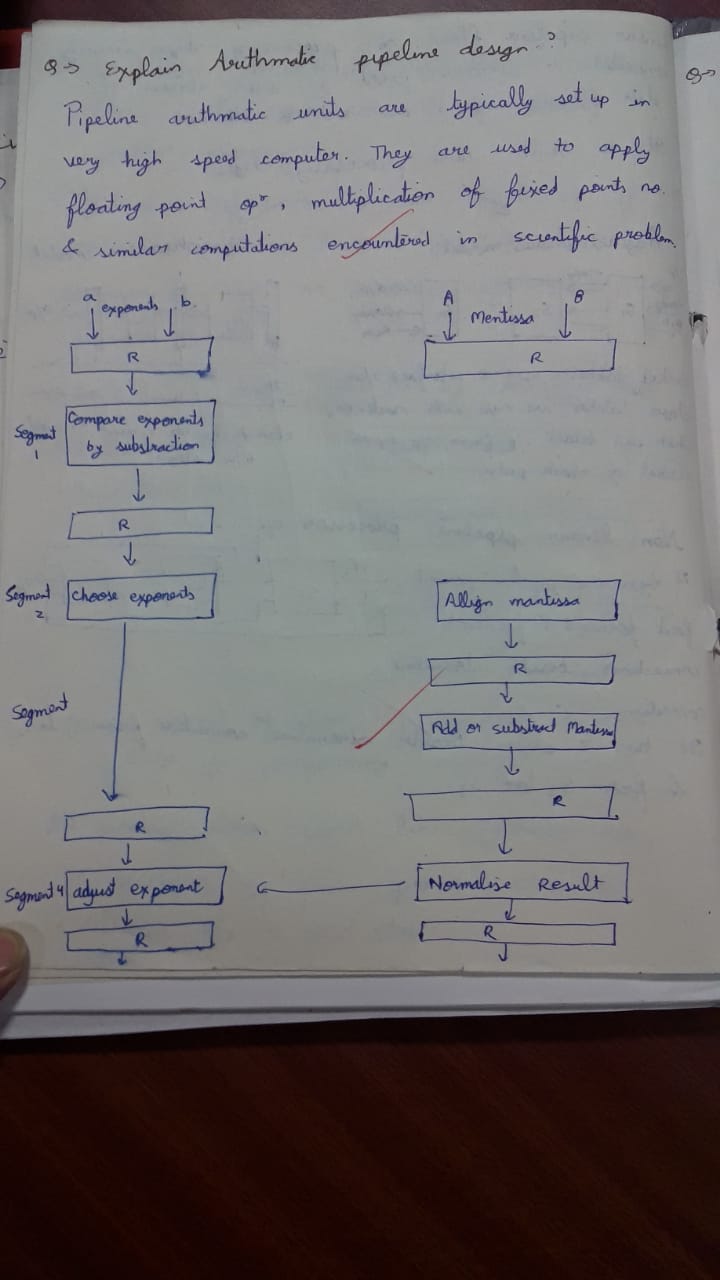 Q→ Explain Arithmatic pipeline design?
Pipeline arithmatic units are typically set up in
very high speed computer. They are used to apply
floating point opr, multiplication of fixed points no.
& similar computations encountered in scientific problem.
a exponents b
A Mentissa B
R
R
Segment 1
Compare exponents
by substraction
R
Segment 2
Choose exponents
Allign mantissa
R
Segment
Add or substract Mantissa
R
R
Segment 4
adjust exponent
Normalise Result
R
R
Q→